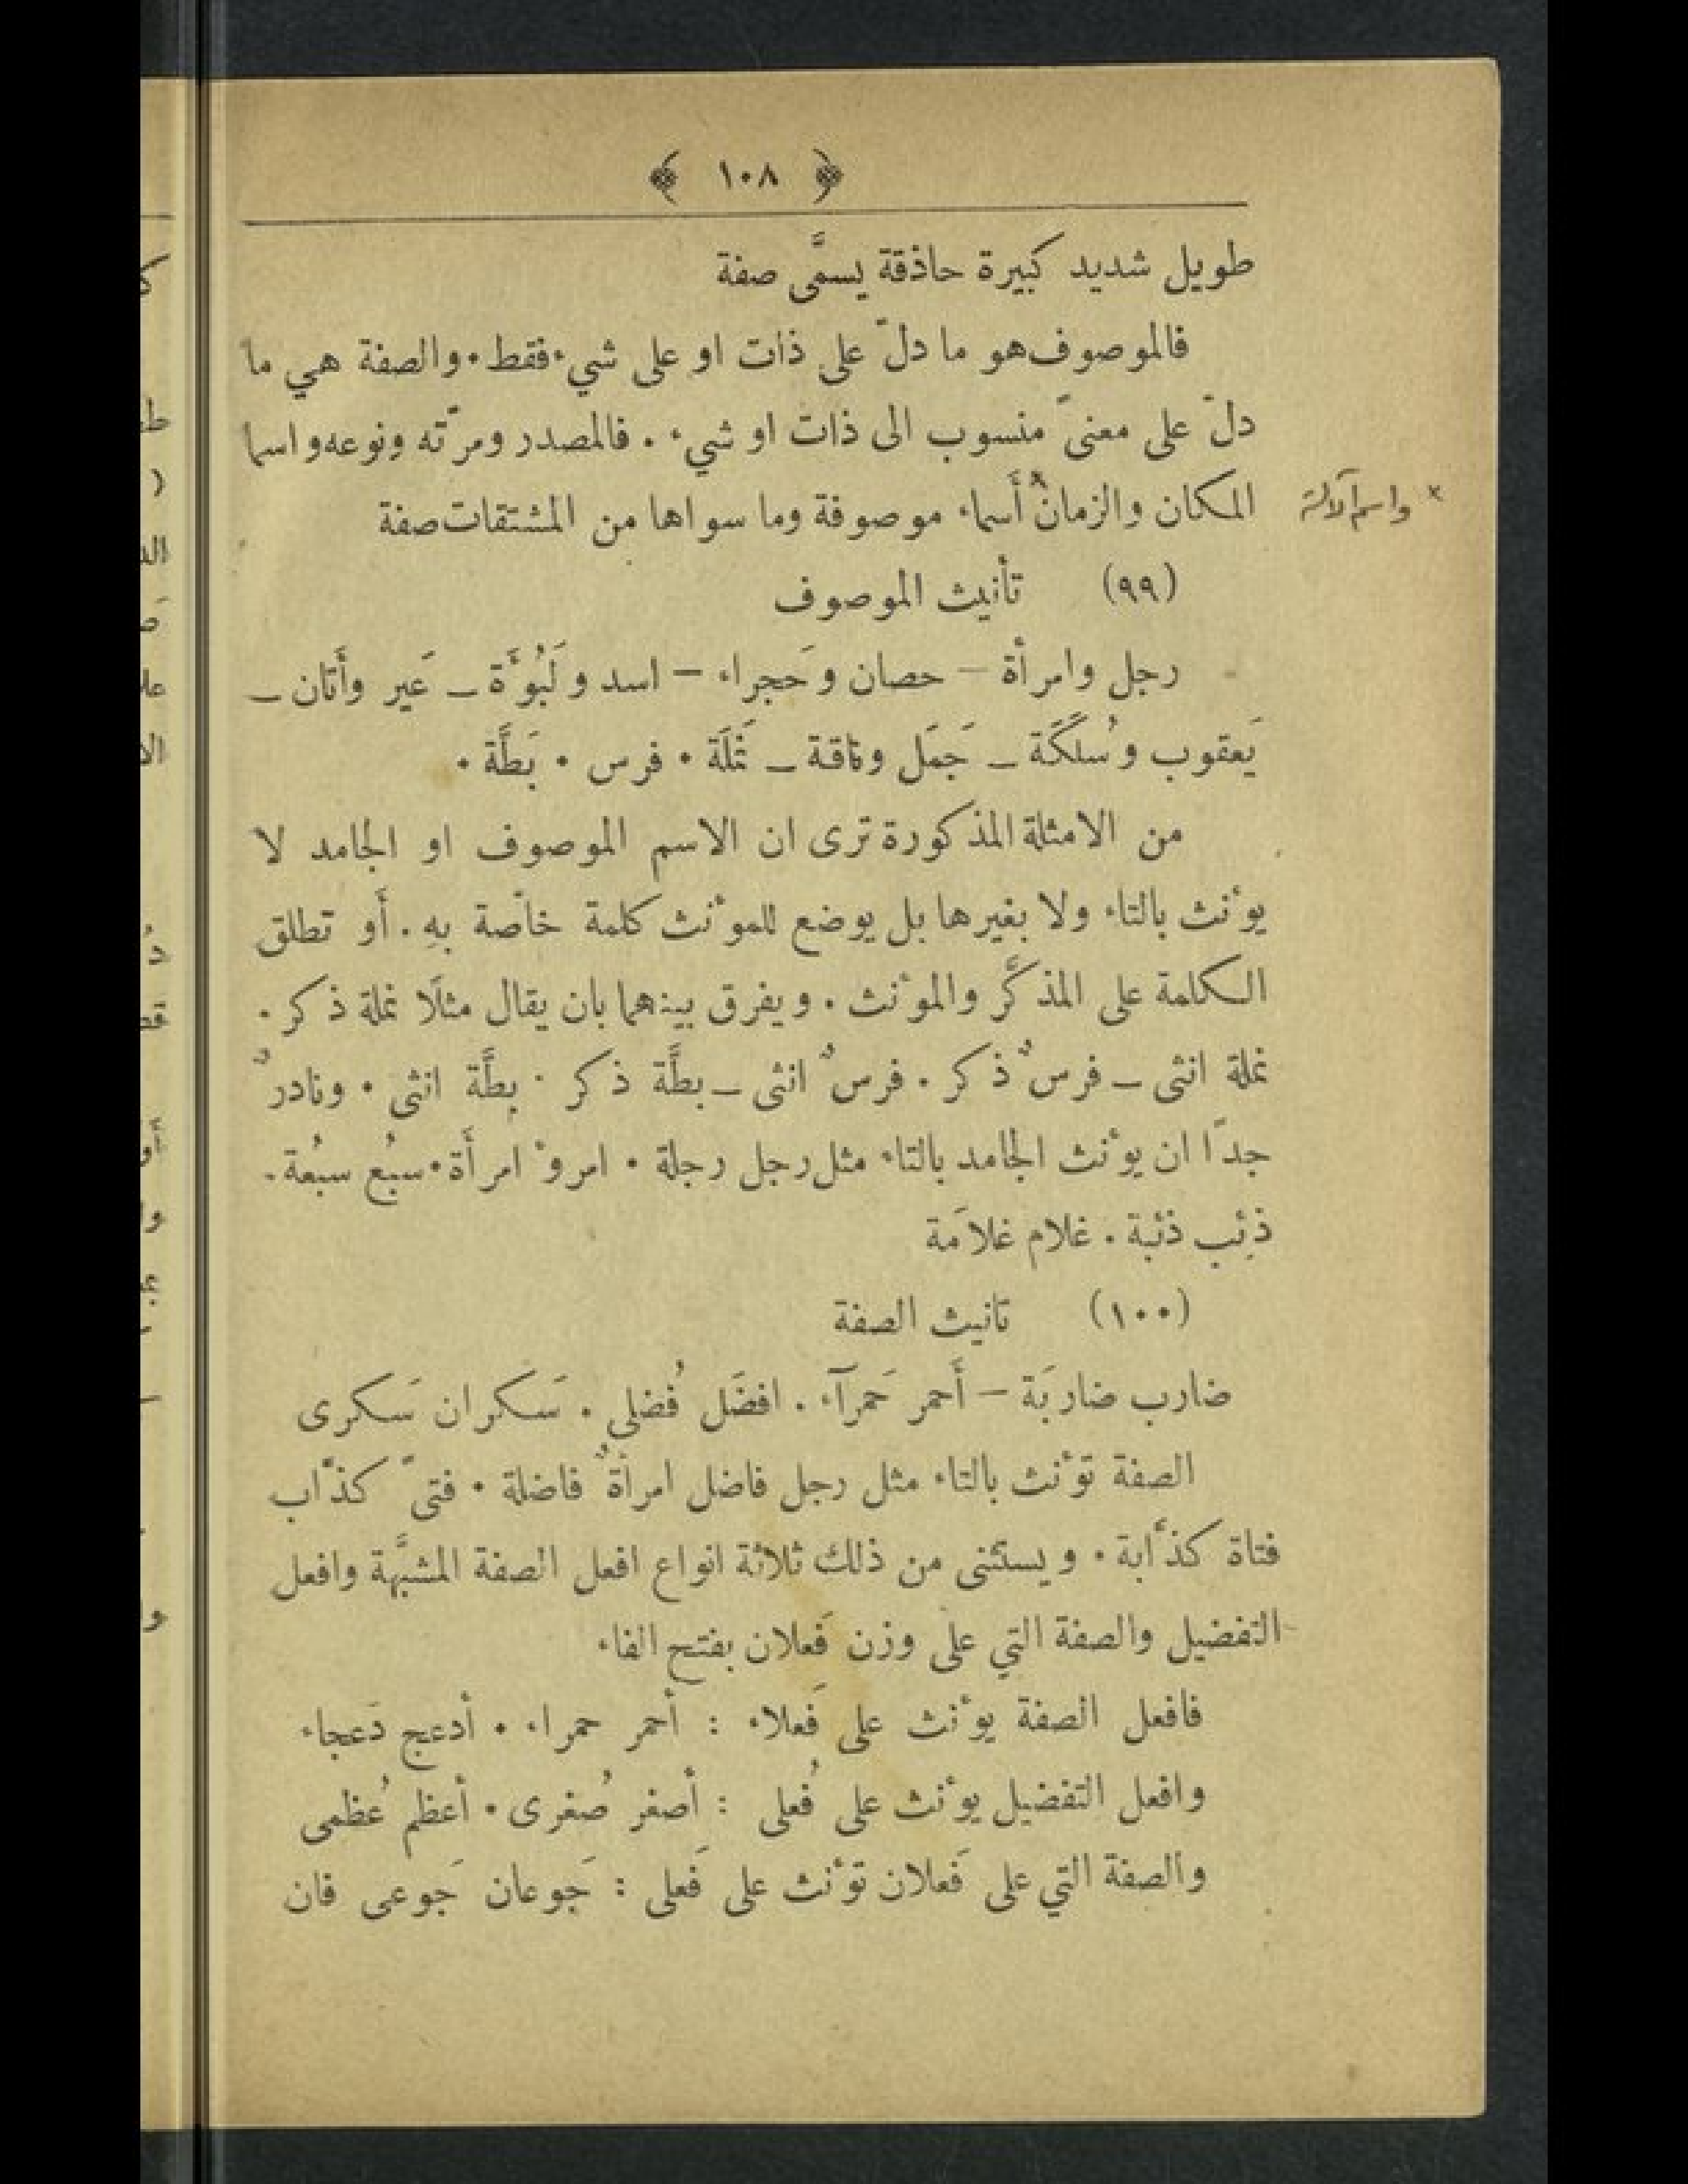 ﴿ ١٠٨ ﴾
طويل شديد كبيرة حاذقة يسمَّى صفة
فالموصوف هو ما دلّ على ذات او على شيء فقط . والصفة هي ما
دلّ على معنىً منسوب الى ذات او شيء . فالمصدر ومرّته ونوعه واسما
المكان والزمان× أَسماء موصوفة وما سواها من المشتقات صفة
× واسم الآلة
(٩٩) تأنيث الموصوف
رجل وامرأة — حصان وحَجراء — اسد ولَبُوأَة — عَير وأَتان —
يَعقوب وسُلَكَة — جَمَل وناقة — نَمْلَة . فرس . بَطَّة .
من الامثلة المذكورة ترى ان الاسم الموصوف او الجامد لا
يؤنث بالتاء ولا بغيرها بل يوضع للمؤنث كلمة خاصّة بهِ . أَو تطلق
الكلمة على المذكَّر والمؤنث . ويفرق بينهما بان يقال مثلًا نملة ذكر .
نملة انثى — فرسٌ ذكر . فرسٌ انثى — بطَّة ذكر . بطَّة انثى . ونادرٌ
جدًا ان يؤنث الجامد بالتاء مثل رجل رجلة . امروٴ امرأَة . سبُع سبُعة .
ذِئب ذئبة . غلام غلامَة
(١٠٠) تانيث الصفة
ضارب ضاربَة — أَحمر حَمرآء . افضَل فُضلى . سَكران سَكرى
الصفة تؤنث بالتاء مثل رجل فاضل امرأةٌ فاضلة . فتىً كذّاب
فتاة كذّابة . ويستثنى من ذلك ثلاثة انواع افعل الصفة المشبَّهة وافعل
التفضيل والصفة التي على وزن فَعلان بفتح الفاء
فافعل الصفة يؤنث على فَعلاء : أحمر حمراء . أدعج دَعجاء
وافعل التفضيل يؤنث على فُعلى : أصغر صُغرى . أعظم عُظمى
والصفة التي على فَعلان تؤنث على فَعلى : جَوعان جَوعى فان